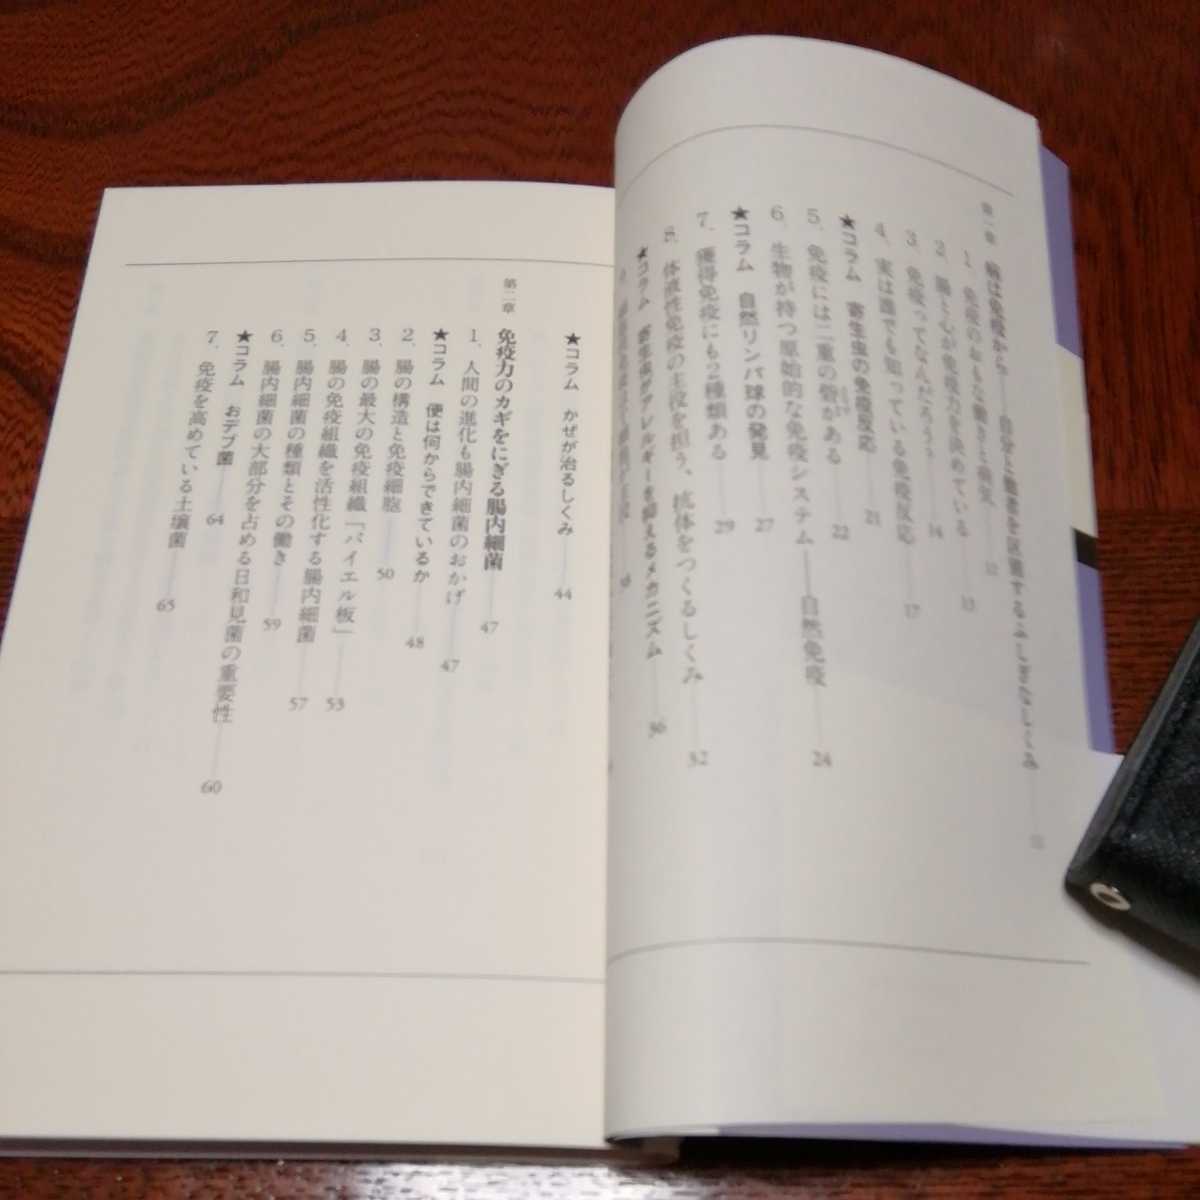 第一章 病は免疫から――自分と他者を区別するふしぎなしくみ――
1、免疫のおもな働きと病気――12
2、腸と心が免疫力を決めている――13
3、免疫ってなんだろう？――14
4、実は誰でも知っている免疫反応――17
★コラム 寄生虫の免疫反応――21
5、免疫には二重の砦がある――22
6、生物が持つ原始的な免疫システム――自然免疫――24
★コラム 自然リンパ球の発見――27
7、獲得免疫にも2種類ある――29
8、体液性免疫の主役を担う、抗体をつくるしくみ――32
★コラム 寄生虫がアレルギーを抑えるメカニズム――36
★コラム かぜが治るしくみ――44
第二章 免疫力のカギをにぎる腸内細菌――47
1、人間の進化も腸内細菌のおかげ――47
★コラム 便は何からできているか――48
2、腸の構造と免疫細胞――50
3、腸の最大の免疫組織「パイエル板」――53
4、腸の免疫組織を活性化する腸内細菌――57
5、腸内細菌の種類とその働き――59
6、腸内細菌の大部分を占める日和見菌の重要性――60
★コラム おデブ菌――64
7、免疫を高めている土壌菌――65